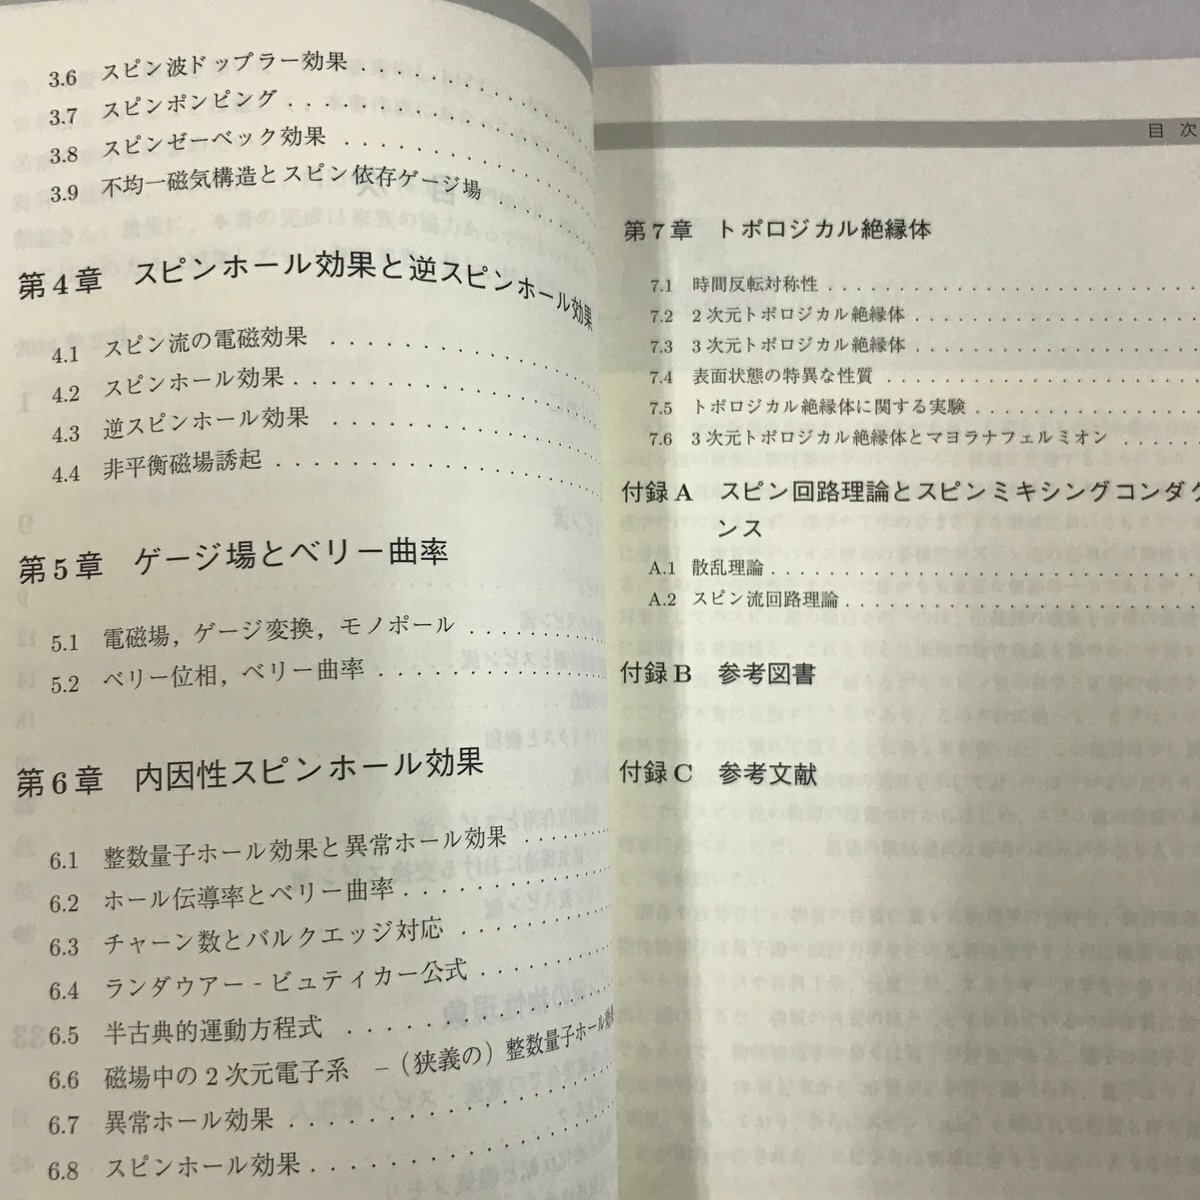 3.6 スピン波ドップラー効果
3.7 スピンポンピング
3.8 スピンゼーベック効果
3.9 不均一磁気構造とスピン依存ゲージ場
第4章 スピンホール効果と逆スピンホール効果
4.1 スピン流の電磁効果
4.2 スピンホール効果
4.3 逆スピンホール効果
4.4 非平衡磁場誘起
第5章 ゲージ場とベリー曲率
5.1 電磁場，ゲージ変換，モノポール
5.2 ベリー位相，ベリー曲率
第6章 内因性スピンホール効果
6.1 整数量子ホール効果と異常ホール効果
6.2 ホール伝導率とベリー曲率
6.3 チャーン数とバルクエッジ対応
6.4 ランダウアー - ビュティカー公式
6.5 半古典的運動方程式
6.6 磁場中の2次元電子系 –（狭義の）整数量子ホール効
6.7 異常ホール効果
6.8 スピンホール効果
目 次
第7章 トポロジカル絶縁体
7.1 時間反転対称性
7.2 2次元トポロジカル絶縁体
7.3 3次元トポロジカル絶縁体
7.4 表面状態の特異な性質
7.5 トポロジカル絶縁体に関する実験
7.6 3次元トポロジカル絶縁体とマヨラナフェルミオン
付録A スピン回路理論とスピンミキシングコンダク
ンス
A.1 散乱理論
A.2 スピン流回路理論
付録B 参考図書
付録C 参考文献